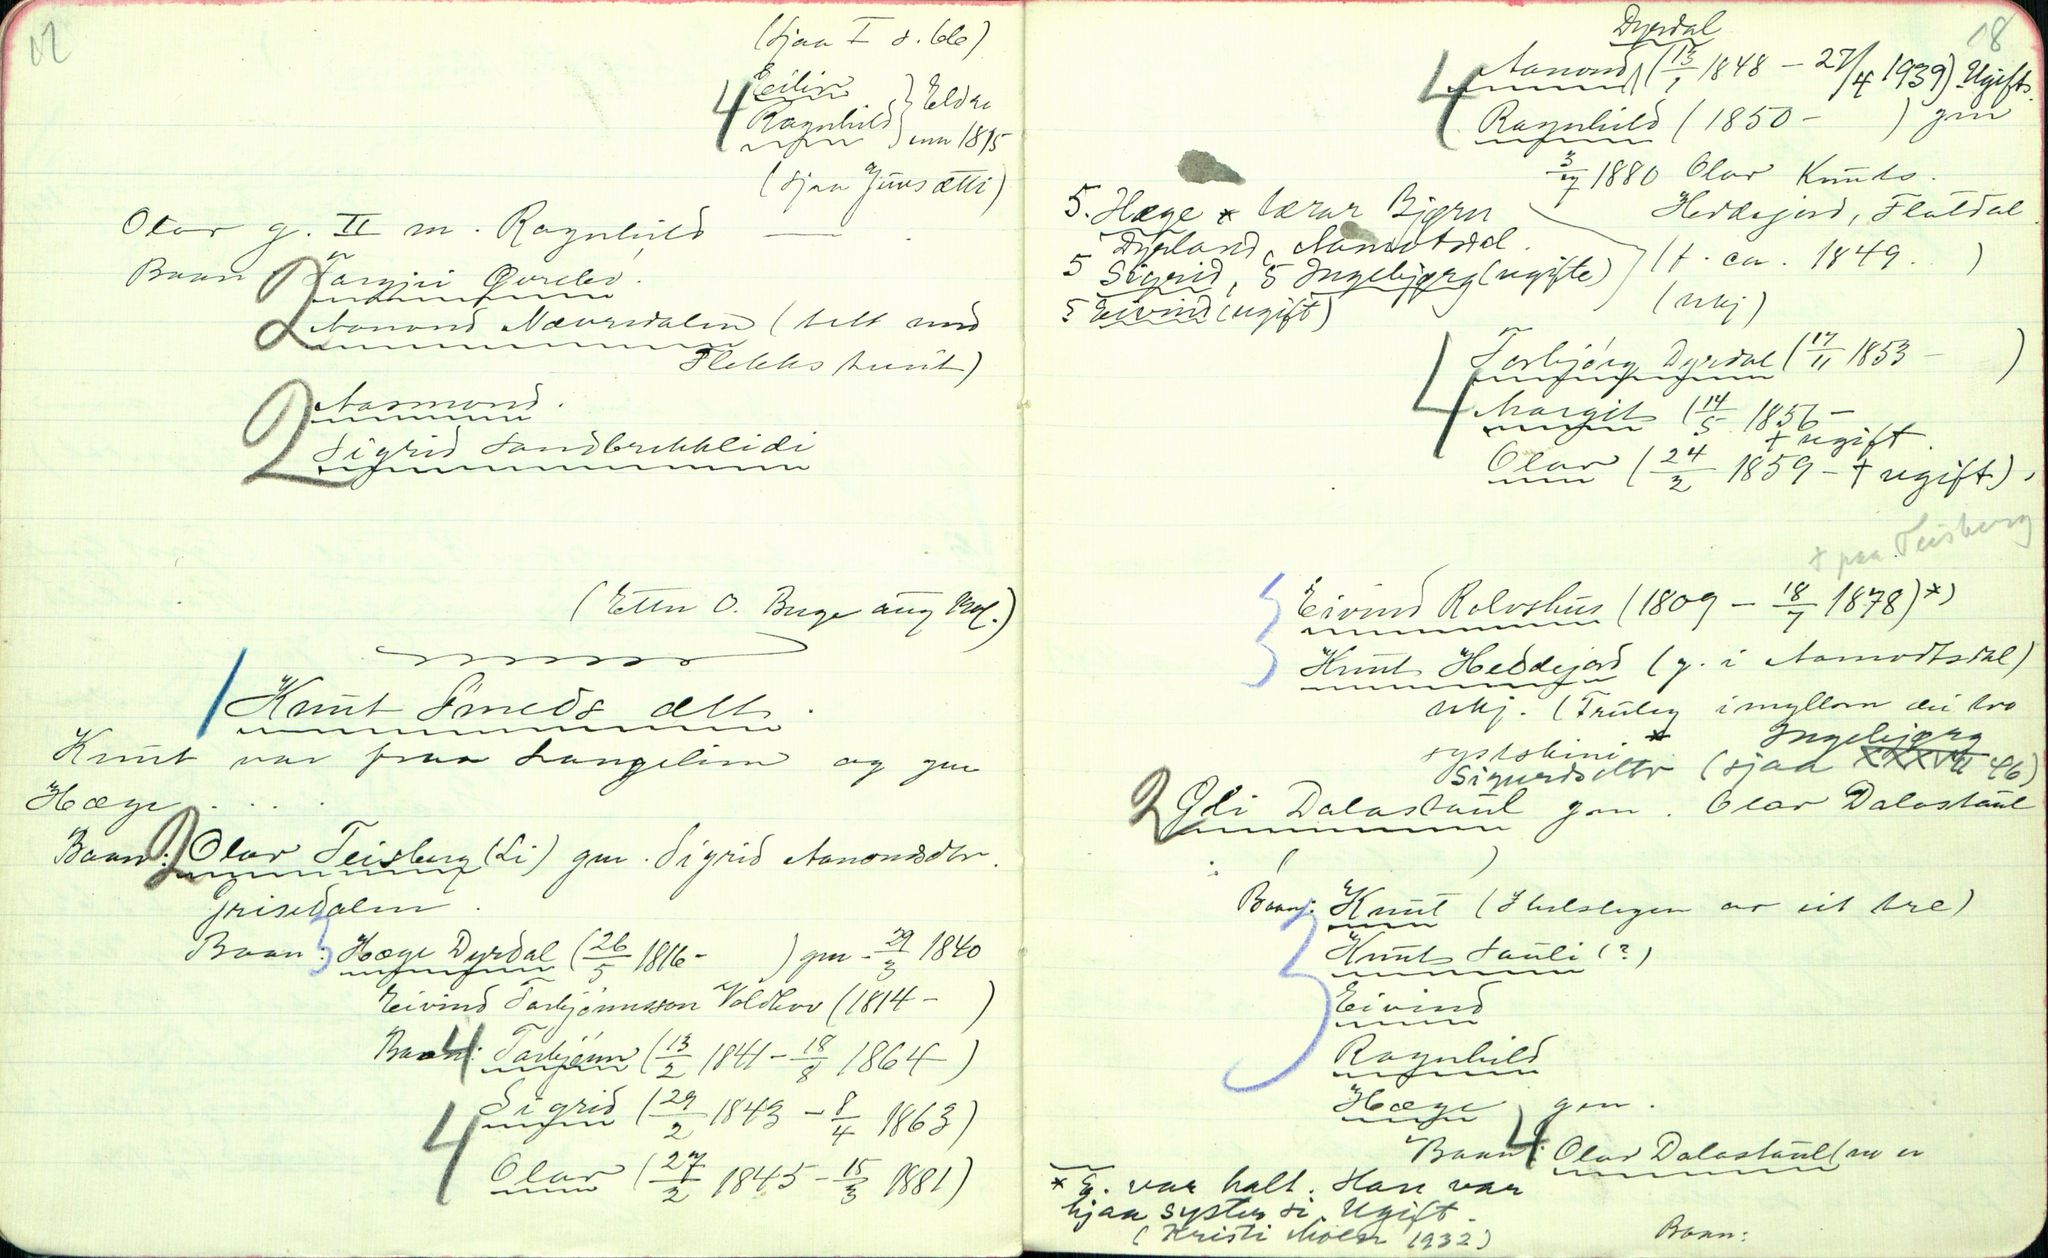 17
(sjaa I s. 66)
4 Eilin } Eldre
Ragnhild } enn 1815
(sjaa Juus ætti)
Olav g. II m. Ragnhild —
Baan: 2 Targjei Øvrebø.
Aanond Nævrsdalen (helt med
Flekkstuut)
2 Aasmond.
Sigrid Sandbrekkleidi
(Etter O. Berge aug
1 Knut Smeds ætt.
Knut var fraa Langelim og gm
Hæge . . . .
Baan: 2 Olav Teisberg (Li) gm. Sigrid Aanondsdtr.
Grisedalen.
Baan: 3 Hæge Dyrdal (26/5 1816- ) gm. 29/3 1840
Eivind Torbjönnsson Voldkov (1814- )
Baan: 4 Torbjönn (13/2 1841-18/8 1864)
4 Sigrid (29/2 1843 - 8/4 1863)
Olav (27/2 1845-15/3 1881)
18
Dyrdal
4 Aanond (13/1 1848 - 27/4 1939) Ugift.
Ragnhild (1850- ) gm
3/7 1880 Olav Knuts.
Heddejord, Flatdal
5. Hæge * Tarar Bjørn
Dyrland, Aamotsdal.
5 Sigrid, 5 Ingebjørg (ugifte)
5 Eivind (ugift)
(f. ca. 1849. )
(nkj)
4 Torbjörg Dyrdal (17/11 1853- )
Margit (14/5 1856-
+ ugift.
Olav (24/2 1859-+ ugift).
+ paa Teisberg
3 Eivind Rolvshus (1809 - 18/7 1878)*)
3 Knut Heddejord (g. i Aamodtsdal)
nkj. (Truleg imyllom dei tvo
systkini *
Ingebjørg
Sigurdsdtr (sjaa 46)
2 Gli Dalastaul gm. Olav Dalastaul
( )
Baan: 3 Knut (Ihelslegen av eit tre)
Knut Sauli (?)
Eivind
Ragnhild
Hæge gm.
Baan: 4 Olav Dalastaul (no er
* E. var halt. Han var
hjaa syster si. Ugift.
(Kristi Moen 1932)
Baan: